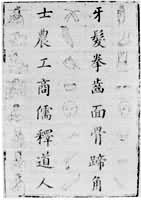 牙髮拳齒面骨蹄角
士農工商儒釋道人